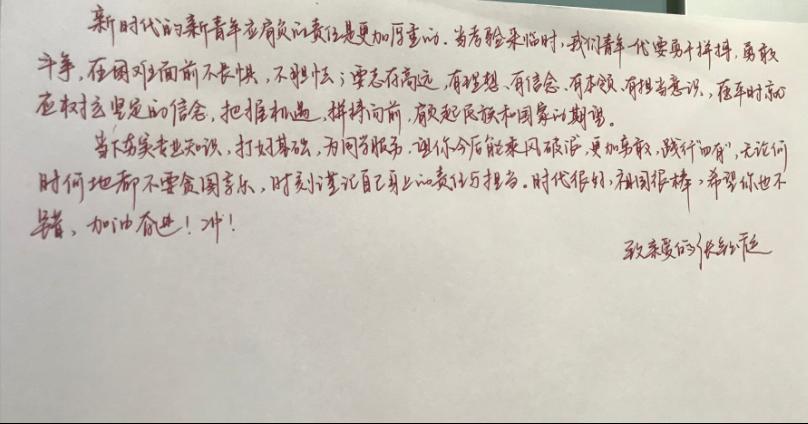 新时代的新青年应肩负的责任是更加厚重的。当考验来临时，我们青年一代要勇于拼搏，勇敢
斗争，在困难面前不畏惧，不胆怯；要志存高远，有理想、有信念、有本领、有担当意识，在平时就
应树立坚定的信念，把握机遇，拼搏向前，肩负起民族和国家的期望。
当下夯实专业知识，打好基础，为同学服务，让你今后能乘风破浪，更加勇敢，践行“四有”，无论何
时何地都不要贪图享乐，时刻谨记自己身上的责任与担当。时代很好，祖国很棒，希望你也不
错，加油奋进！冲！
致亲爱的张